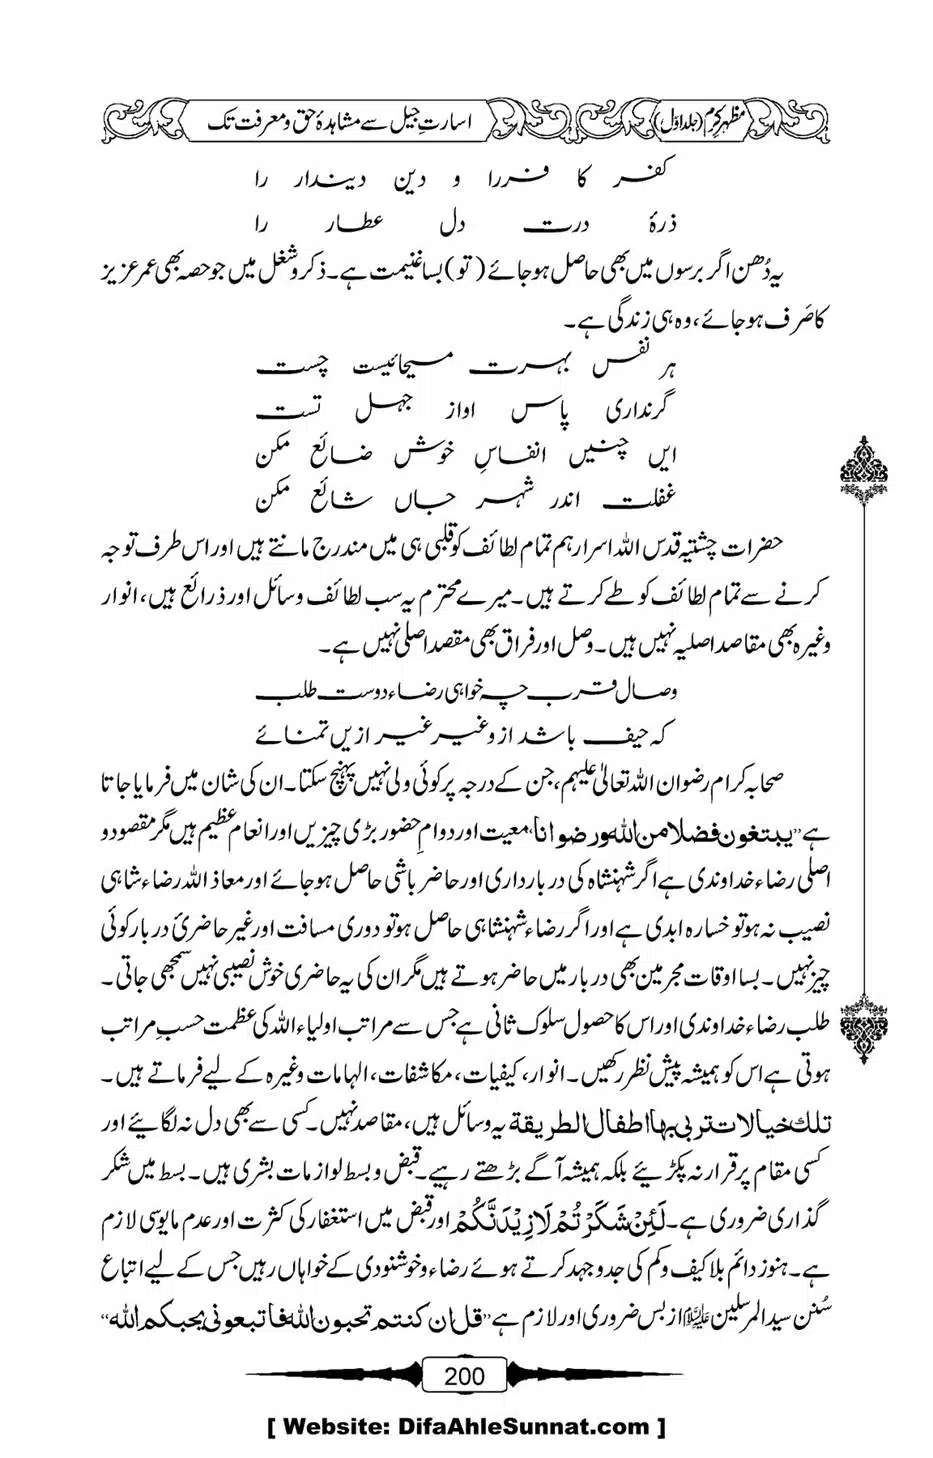 مظہر کرم (جلد اول) اسارتِ جیل سے مشاہدۂ حق و معرفت تک
کفر کا فررا و دین دیندار را
ذرۂ درت دل عطار را
یہ دُھن اگر برسوں میں بھی حاصل ہوجائے (تو) بسا غنیمت ہے۔ ذکر و شغل میں جو حصہ بھی عمر عزیز
کا صَرف ہوجائے، وہ ہی زندگی ہے۔
ہر نفس بہرت مسیحائیست چست
گرنداری پاس اواز جہل تست
ایں چنیں انفاسِ خوش ضائع مکن
غفلت اندر شہر جاں شائع مکن
حضرات چشتیہ قدس اللہ اسرارہم تمام لطائف کو قلبی ہی میں مندرج مانتے ہیں اور اس طرف توجہ
کرنے سے تمام لطائف کو طے کرتے ہیں۔ میرے محترم یہ سب لطائف وسائل اور ذرائع ہیں، انوار
وغیرہ بھی مقاصد اصلیہ نہیں ہیں۔ وصل اور فراق بھی مقصد اصلی نہیں ہے۔
وصال قرب چہ خواہی رضاء دوست طلب
کہ حیف باشد از و غیر غیر ازیں تمنائے
صحابہ کرام رضوان اللہ تعالیٰ علیہم، جن کے درجہ پر کوئی ولی نہیں پہنچ سکتا۔ ان کی شان میں فرمایا جاتا
ہے ”یبتغون فضلا من اللہ ورضوانا“، معیت اور دوامِ حضور بڑی چیزیں اور انعام عظیم ہیں مگر مقصود و
اصلی رضاء خداوندی ہے اگر شہنشاہ کی دربارداری اور حاضر باشی حاصل ہوجائے اور معاذ اللہ رضاء شاہی
نصیب نہ ہو تو خسارہ ابدی ہے اور اگر رضاء شہنشاہی حاصل ہو تو دوری مسافت اور غیر حاضریٔ دربار کوئی
چیز نہیں۔ بسا اوقات مجرمین بھی دربار میں حاضر ہوتے ہیں مگر ان کی یہ حاضری خوش نصیبی نہیں سمجھی جاتی۔
طلب رضاء خداوندی اور اس کا حصول سلوک ثانی ہے جس سے مراتب اولیاء اللہ کی عظمت حسبِ مراتب
ہوتی ہے اس کو ہمیشہ پیش نظر رکھیں۔ انوار، کیفیات، مکاشفات، الہامات وغیرہ کے لیے فرماتے ہیں۔
تلك خيالات تربی بها اطفال الطريقة یہ وسائل ہیں، مقاصد نہیں۔ کسی سے بھی دل نہ لگائیے اور
کسی مقام پر قرار نہ پکڑیئے بلکہ ہمیشہ آگے بڑھتے رہیے۔ قبض و بسط لوازمات بشری ہیں۔ بسط میں شکر
گذاری ضروری ہے۔ لَئِنْ شَكَرْتُمْ لَازِيْدَنَّكُمْ اور قبض میں استغفار کی کثرت اور عدم مایوسی لازم
ہے۔ ہنوز دائم بلا کیف و کم کی جدوجہد کرتے ہوئے رضاء و خوشنودی کے خواہاں رہیں جس کے لیے اتباع
سُنن سید المرسلین ﷺ از بس ضروری اور لازم ہے ”قل ان كنتم تحبون الله فاتبعونی يحببكم الله“
200
[ Website: DifaAhleSunnat.com ]